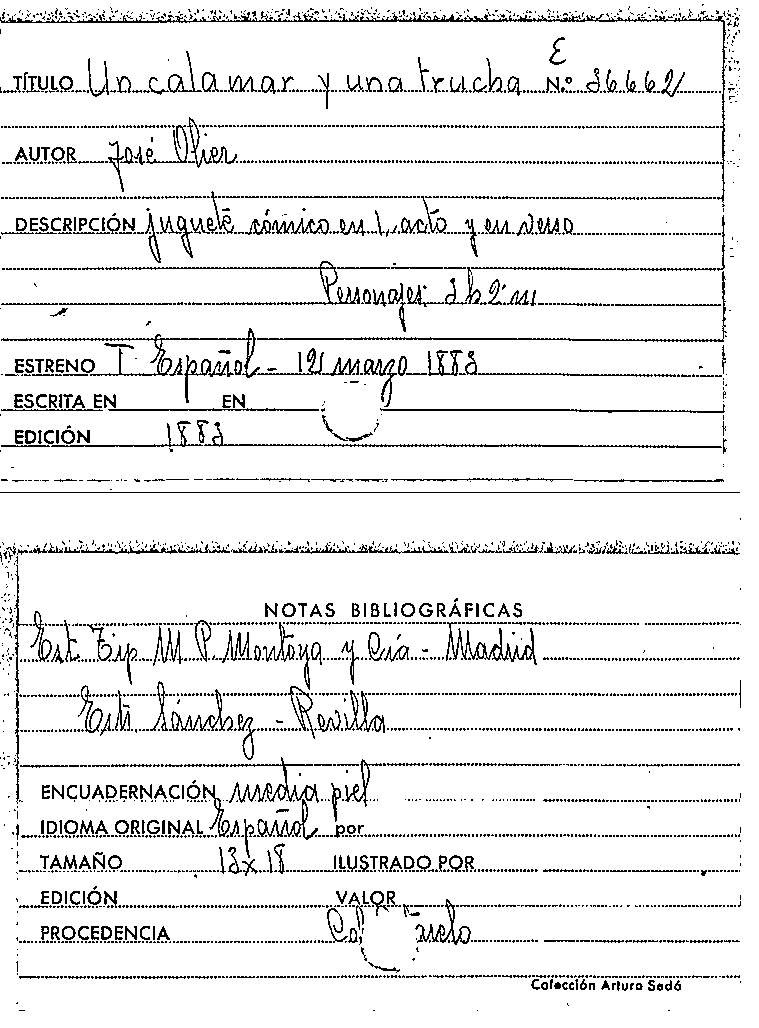 E
TÍTULO Un calamar y una trucha N.º 36662
AUTOR José Olier
DESCRIPCIÓN juguete cómico en 1, acto y en verso
Personajes: 3 h 2 m
ESTRENO T Español - 12 marzo 1883
ESCRITA EN EN
EDICIÓN 1883
NOTAS BIBLIOGRÁFICAS
Est. Tip M P. Montoya y Cía - Madrid
Sánchez - Revilla
ENCUADERNACIÓN media piel
IDIOMA ORIGINAL Español por
TAMAÑO 13x18 ILUSTRADO POR
EDICIÓN VALOR
PROCEDENCIA
Colección Arturo Sedó